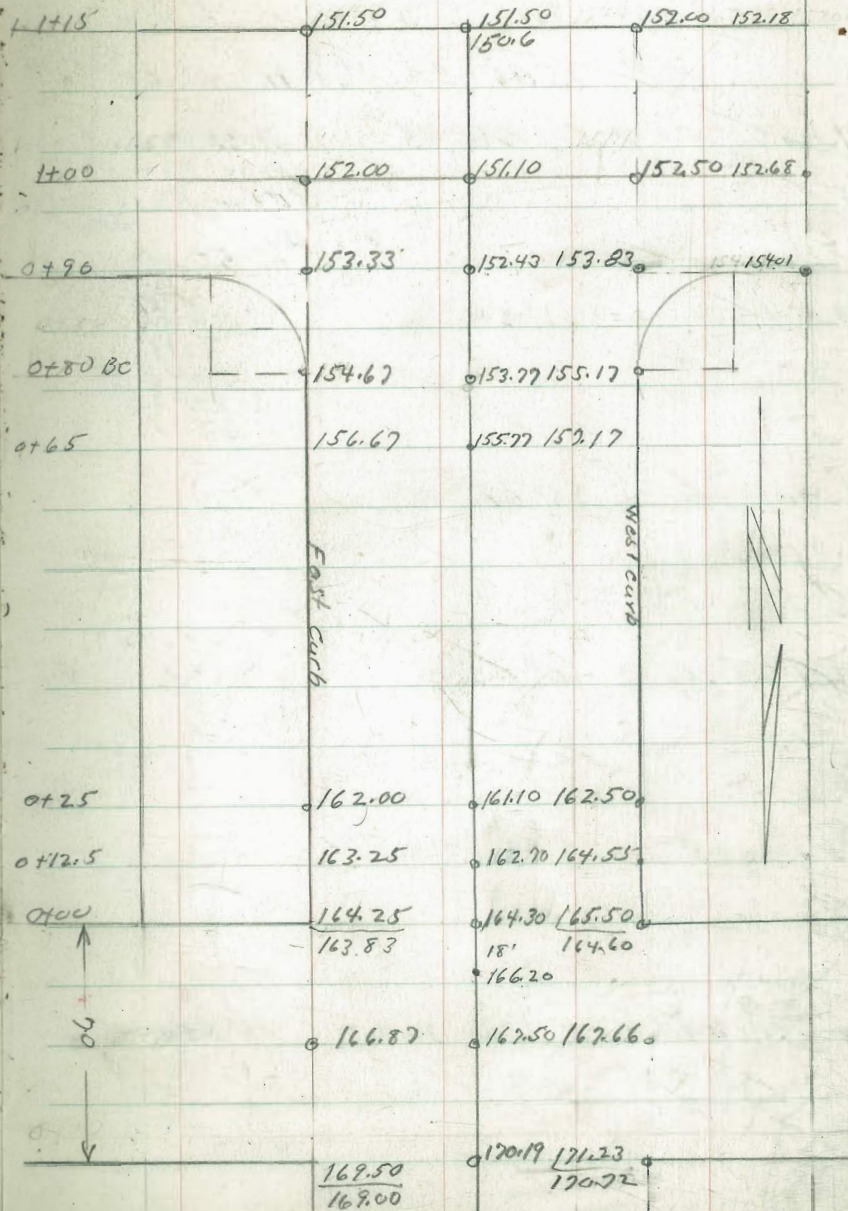 1+15 151.50 151.50 152.00 152.18
150.6
1+00 152.00 151.10 152.50 152.68
0+90 153.33 152.43 153.83 154.01
0+80 BC 154.67 153.77 155.17
0+65 156.67 155.77 157.17
East Curb
West Curb
0+25 162.00 161.10 162.50
0+12.5 163.25 162.70 164.55
0+00 164.25 164.30 165.50
163.83 18' 164.60
166.20
70
166.87 167.50 167.66
170.19 171.23
169.50 170.72
169.00